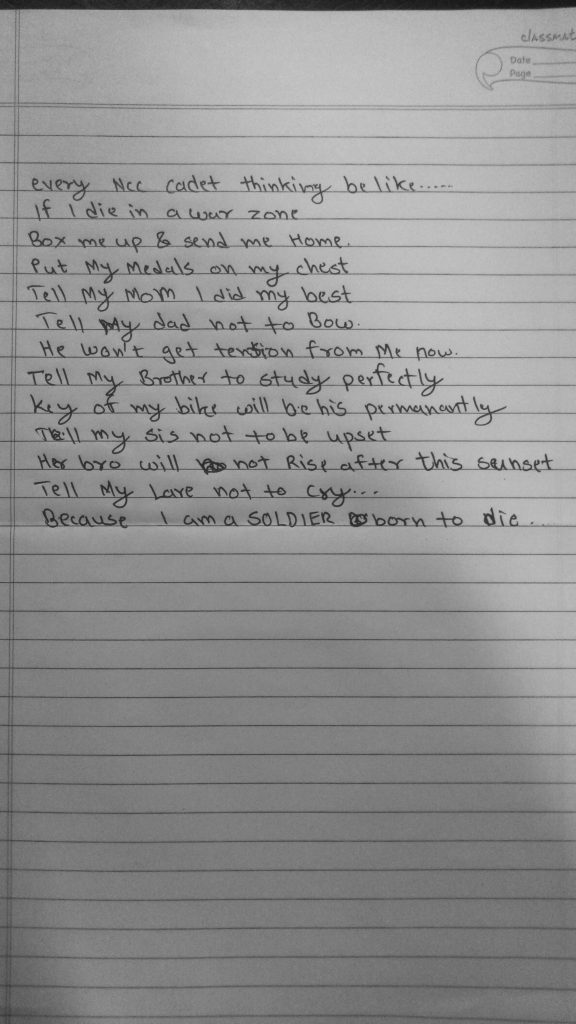 classmat
Date
Page
every Ncc cadet thinking be like......
If I die in a war zone
Box me up & send me Home.
Put My Medals on my chest
Tell My Mom I did my best
Tell My dad not to Bow.
He won't get tension from Me now.
Tell My Brother to study perfectly
key of my bike will be his permanantly
Tell my sis not to be upset
Her bro will not Rise after this sunset
Tell My Love not to Cry...
Because I am a SOLDIER born to die...